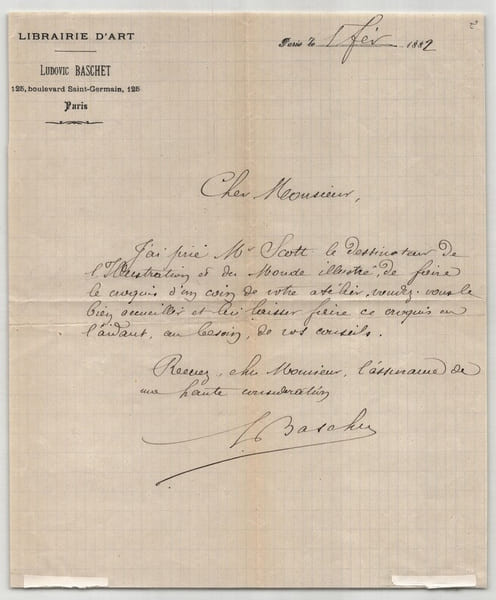 LIBRAIRIE D'ART
LUDOVIC BASCHET
125, boulevard Saint-Germain, 125
Paris
Paris le 1 fév 1882
2
Cher Monsieur,
J'ai prié Mr Scott le dessinateur de
l'Illustration et du Monde illustré, de faire
le croquis d'un coin de votre atelier, voudrez-vous le
bien accueillir et lui laisser faire ce croquis en
l'aidant, au besoin, de vos conseils.
Recevez, cher Monsieur, l'assurance de
ma haute considération
L Baschet